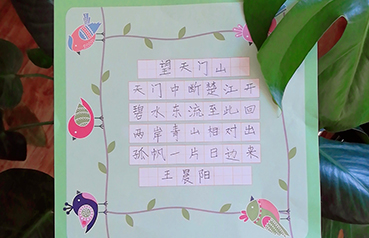 望天门山
天门中断楚江开
碧水东流至此回
两岸青山相对出
孤帆一片日边来
王晨阳